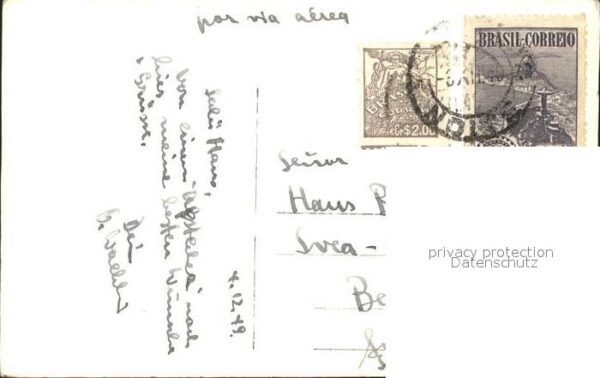 por via aérea
BRASIL-CORREIO
Cr$2.00
4.12.49.
Salü Hans,
von einem "Abstecher" nach
hier meine besten Wünsche
+ Grüsse.
Dei
Señor
Hans
Svea-
Be
privacy protection
Datenschutz